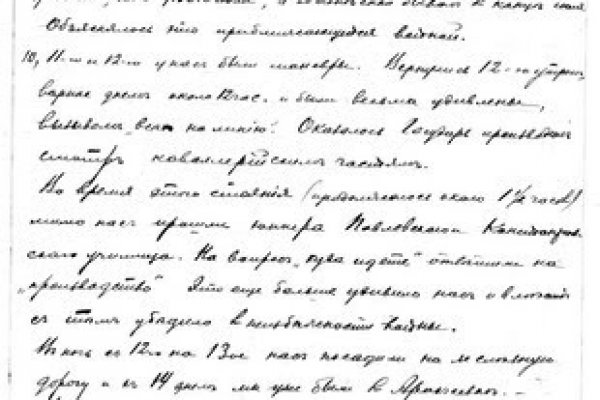 Объяснялось это приближающейся войной.
10, 11-го и 12-го у нас были маневры. Вернулись 12-го утром,
вернее днем около 12 час. и были весьма удивлены,
вызовом „всех на линию". Оказалось Государь производит
смотр кавалерийским частям.
Во время этого стояния (продолжалось около 1½ часов)
мимо нас прошли юнкера Павловского и Константинов-
ского училища. На вопрос „куда идете" ответили на
„производство" Это еще больше удивило нас и
с тем убедило в неизбежности войны.
В ночь с 12-го на 13-ое нас посадили на железную
дорогу и 14 днем мы уже были в